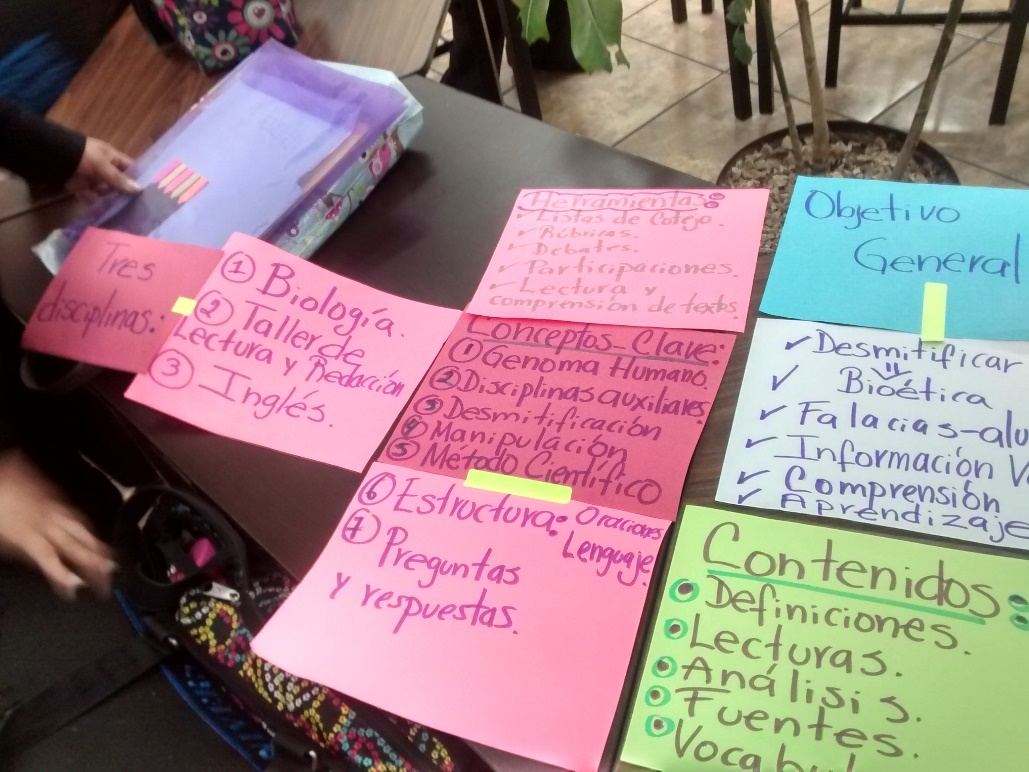 Tres
disciplinas:
① Biología.
② Taller de
Lectura y Redacción
③ Inglés.
Herramientas:
✓ Listas de Cotejo.
✓ Rúbricas.
✓ Debates.
✓ Participaciones.
✓ Lectura y
comprensión de textos.
Conceptos-Clave:
① Genoma Humano.
② Disciplinas auxiliares.
③ Desmitificación
④ Manipulación
⑤ Metodo Científico
⑥ Estructura: Oraciones
Lenguaje.
⑦ Preguntas
y respuestas.
Objetivo
General
✓ Desmitificar
✓ Bioética
✓ Falacias-
✓ Información
✓ Comprensión
✓ Aprendizaje
Contenidos:
Definiciones.
Lecturas.
Análisis.
Fuentes.